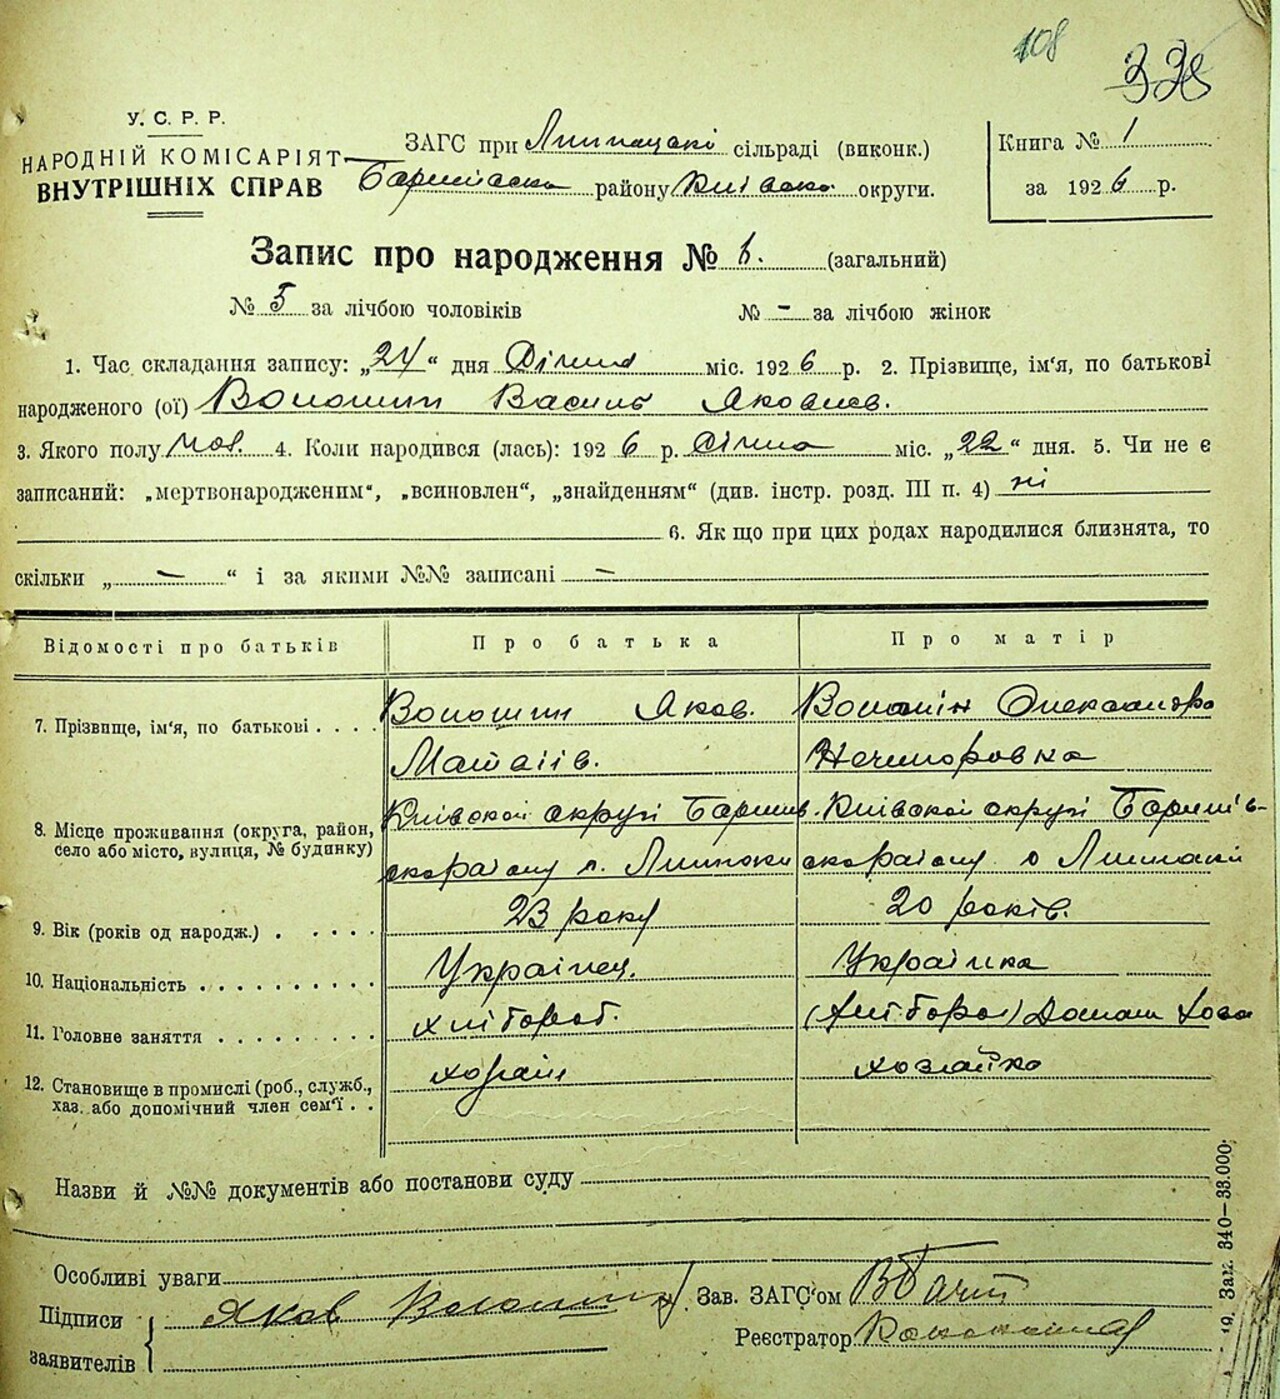 108
338
У. С. Р. Р.
НАРОДНІЙ КОМІСАРІЯТ
ВНУТРІШНІХ СПРАВ
ЗАГС при сільраді (виконк.)
району округи.
Книга № 1
за 1926 р.
Запис про народження № 6. (загальний)
№ 5 за лічбою чоловіків № - за лічбою жінок
1. Час складання запису: „24“ дня Січня міс. 1926 р. 2. Прізвище, ім'я, по батькові
народженого (ої) Волошин Василь Яковлев.
3. Якого полу чол. 4. Коли народився (лась): 1926 р. Січня міс. „22“ дня. 5. Чи не є
записаний: „мертвонародженим“, „всиновлен“, „знайденням“ (див. інстр. розд. III п. 4) ні
6. Як що при цих родах народилися близнята, то
скільки „ — “ і за якими №№ записані —
Відомості про батьків Про батька Про матір
7. Прізвище, ім'я, по батькові . . . . Волошин Яков. Волошін Олександра
Матвіів. Нечипоровка
8. Місце проживання (округа, район, село або місто, вулиця, № будинку)
Київской округі Київской округі
9. Вік (років од народж.) . . . . . 23 року 20 років.
10. Національність . . . . . . . . . . Українец. Українка
11. Головне заняття . . . . . . . . . хлібороб. (хлібороб) Домаш хоз
12. Становище в промислі (роб., служб., хаз. або допомічний член сем'ї . . хозяін хозяйка
Назви й №№ документів або постанови суду
Особливі уваги
Підписи
заявителів
Яков Волошин
Зав. ЗАГС'ом
Реєстратор
Зак. 340—33.000.